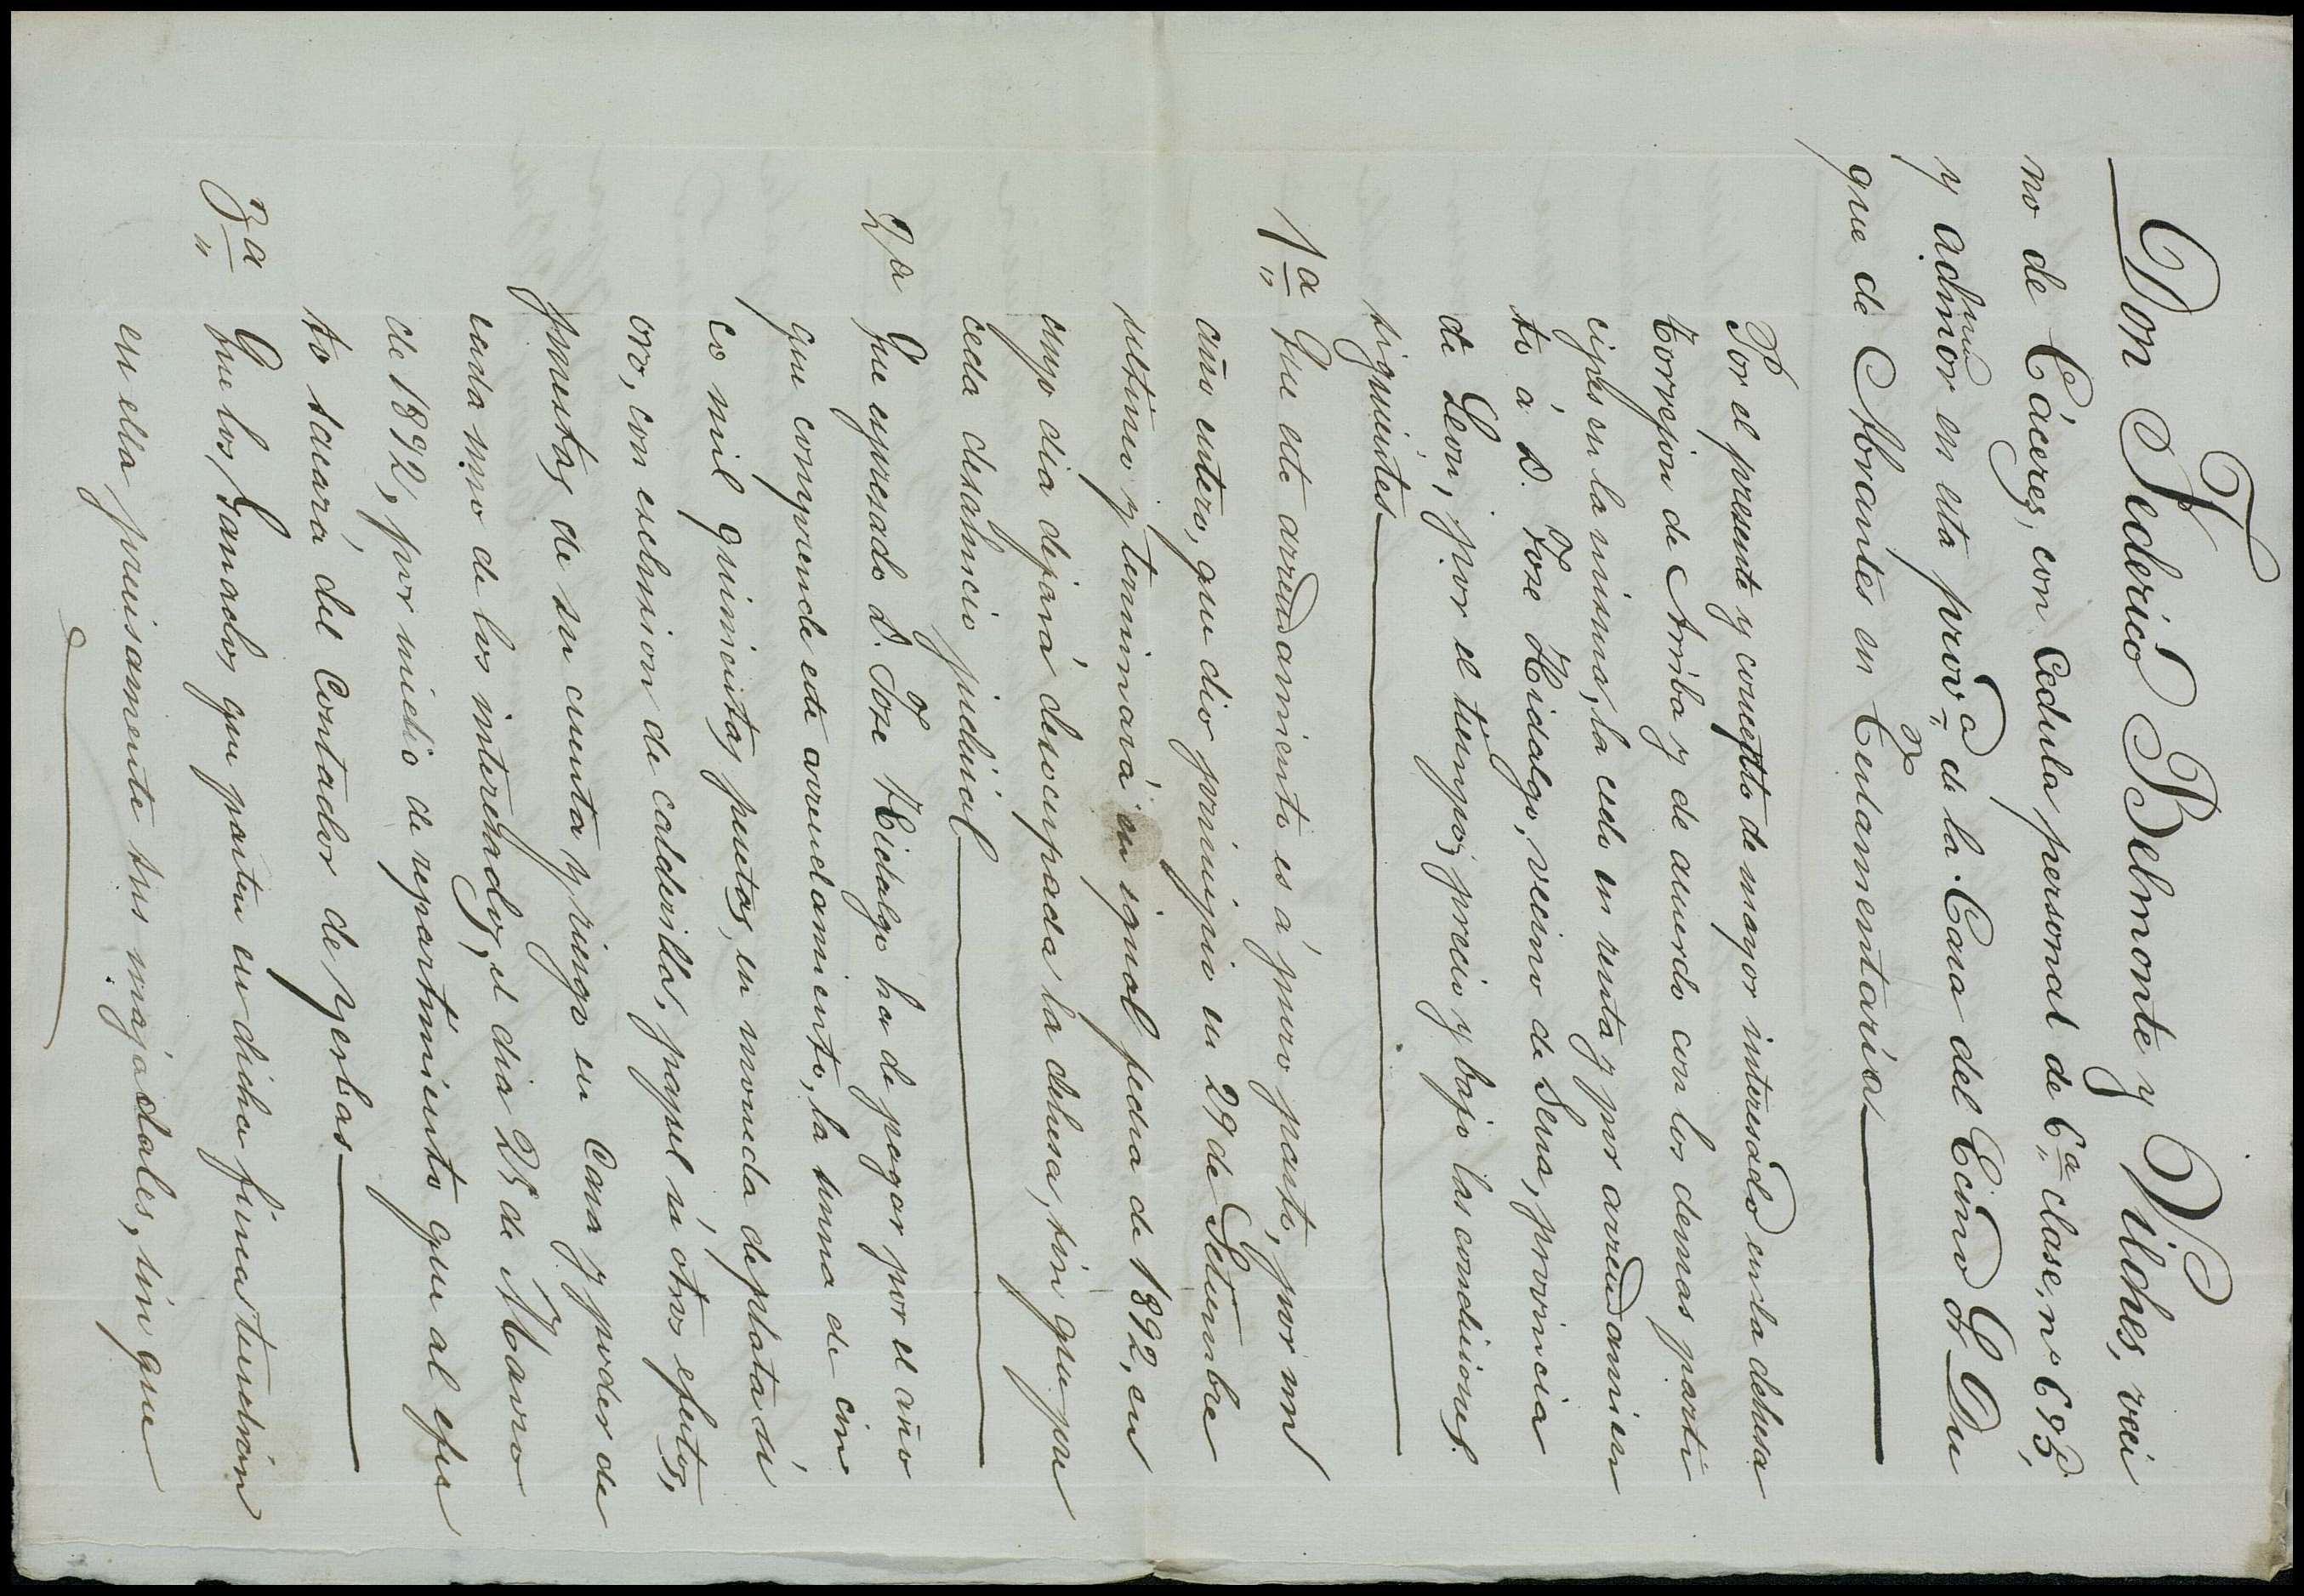 Don Federico Belmonte y Vilches, veci
no de Cáceres, con Cedula personal de 6ª clase, nº 693,
y admor en esta provª de la Casa del Ecmo Sr Du
que de Abrantes en Testamentaría
Por el presente y concepto de mayor interesado en la dehesa
Torrejon de Arriba y de acuerdo con los demas parti
cipes en la misma, la cedo en renta y por arrendamien
to á D. Jose Hidalgo, vecino de Sena, provincia
de Leon, por el tiempo, precio y bajo las condiciones
siguientes
1ª Que este arrendamiento es á puro pasto, por un
año entero, que dio principio en 29 de Setiembre
ultimo y terminará en igual fecha de 1892, en
cuyo dia dejará desocupada la dehesa, sin que pre
ceda desahucio judicial
2ª Que espresado D. Jose Hidalgo ha de pagar por el año
que comprende este arrendamiento, la suma de cin
co mil quinientas pesetas, en moneda de plata ú
oro, con esclusion de calderilla, papel ú otros efectos,
puestas de su cuenta y riesgo en Casa y poder de
cada uno de los interesados, el dia 25 de Marzo
de 1892, por medio de repartimiento que al efec
to sacará del Contador de yerbas
3ª Que los Ganados que pasten en dicha finca tendrán
en ella precisamente sus majadales, sin que